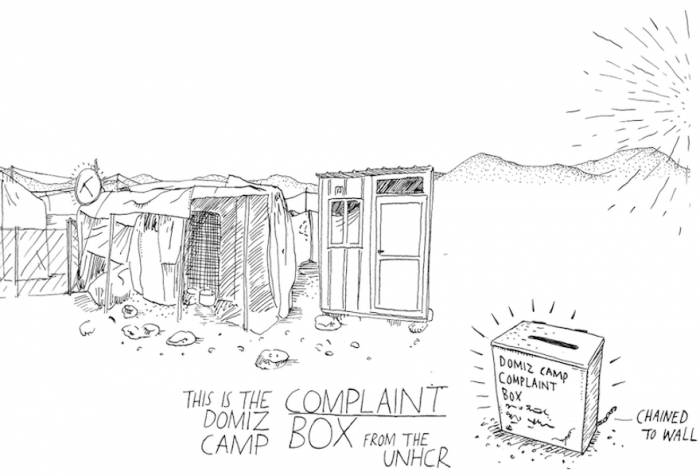 THIS IS THE COMPLAINT
DOMIZ BOX FROM THE
CAMP UNHCR
DOMIZ CAMP
COMPLAINT
BOX
CHAINED
TO WALL